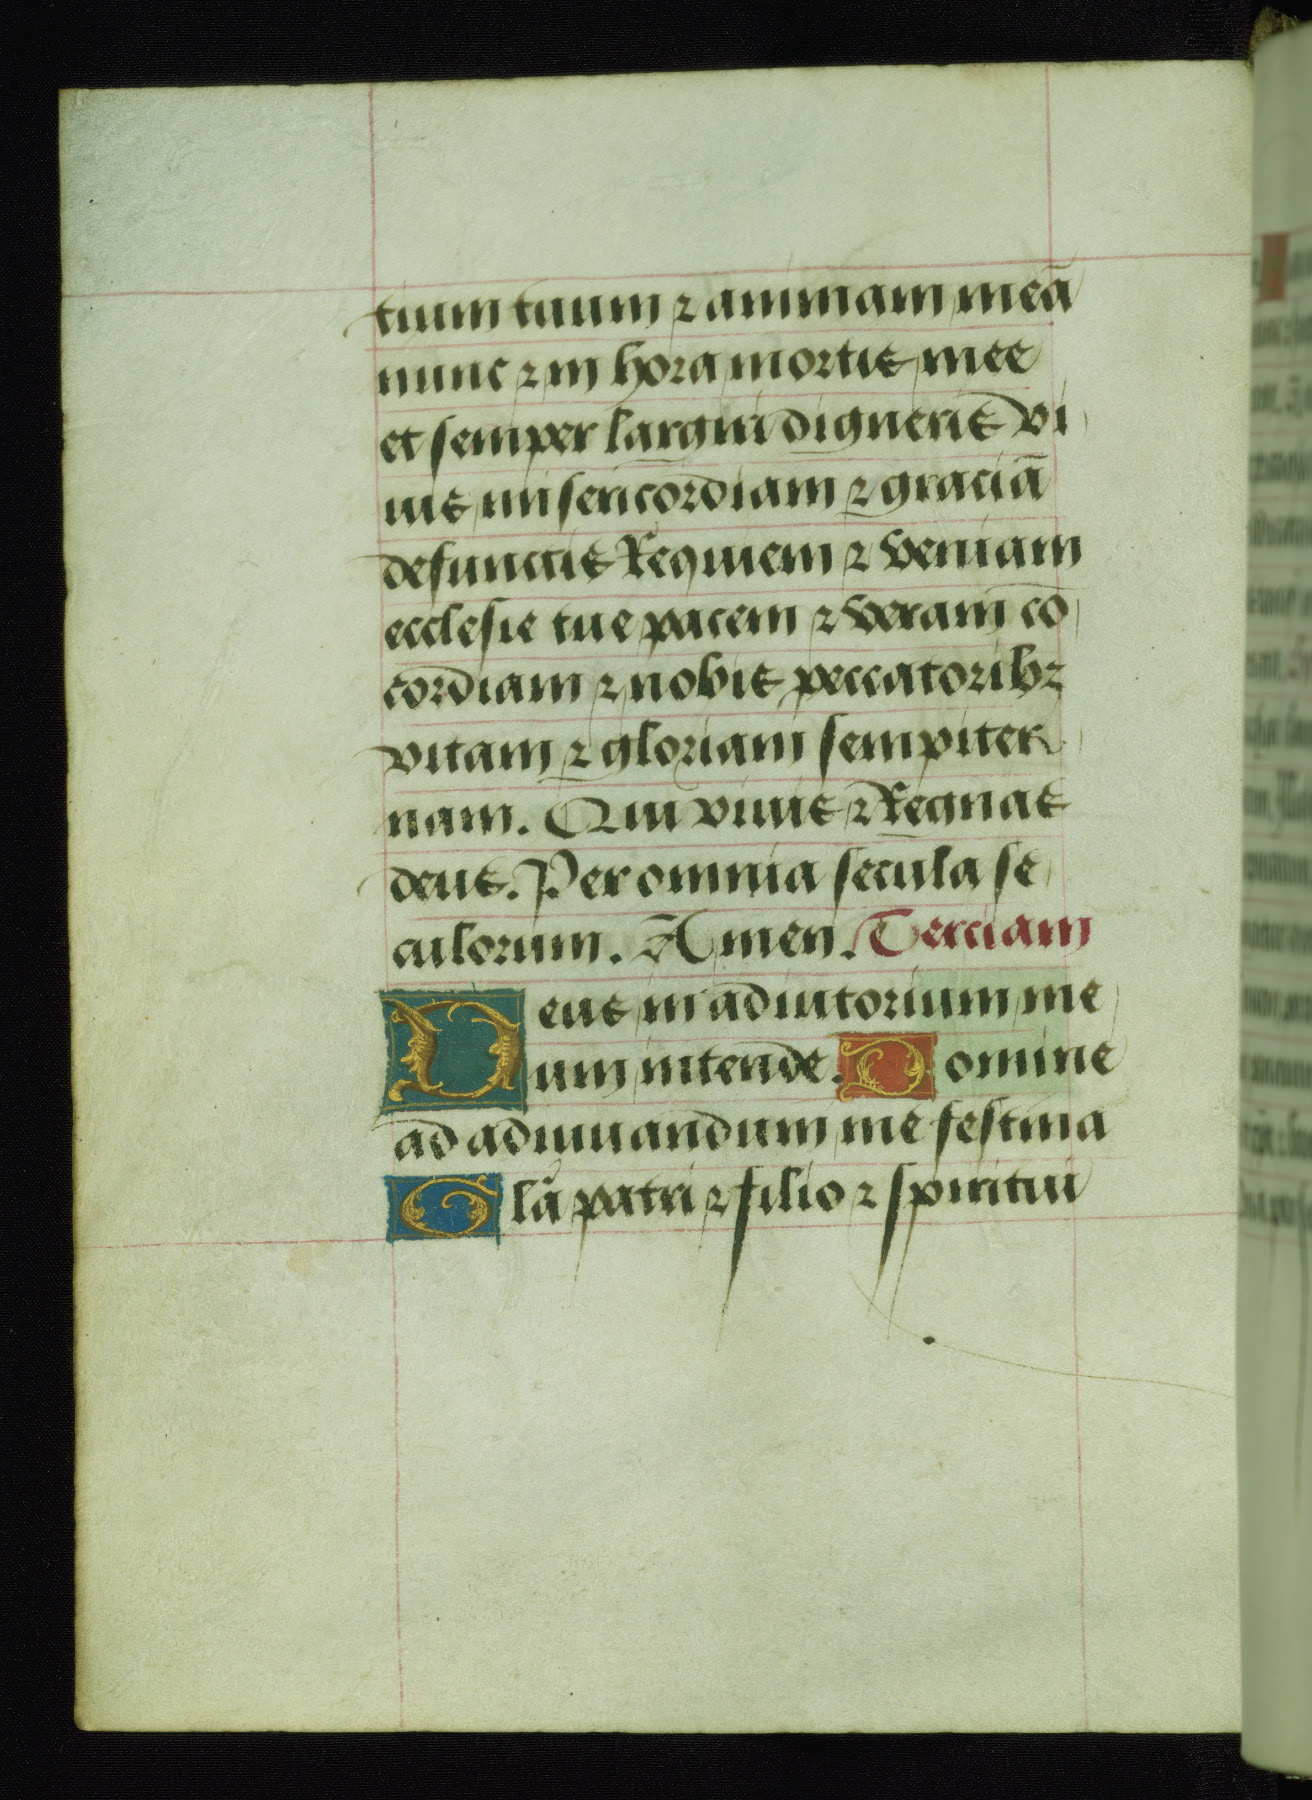 tium tuum ⁊ animam meā
nunc ⁊ in hora mortis mee
et semper largiri digneris vi
uis misericordiam ⁊ graciā
defunctis Requiem ⁊ veniam
ecclesie tue pacem ⁊ veram cō
cordiam ⁊ nobis peccatoribꝫ
vitam ⁊ gloriam sempiter
nam. Qui viuis ⁊ Regnas
deus. Per omnia secula se
culorum. Amen. Terciam
Deus in adiutorium me
um intende. Domine
ad adiuuandum me festina
Glā patri ⁊ filio ⁊ spiritui